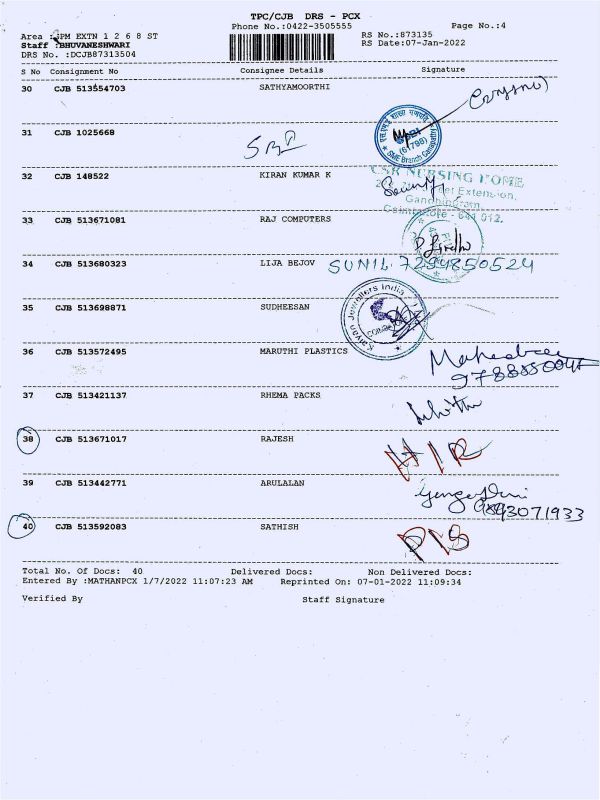 TPC/CJB DRS - PCX
Phone No.:0422-3505555
Page No.:4
Area :GPM EXTN 1 2 6 8 ST
RS No.:873135
Staff :BHUVANESHWARI
RS Date:07-Jan-2022
DRS No. :DCJB87313504
S No Consignment No Consignee Details Signature
30 CJB 513554703 SATHYAMOORTHI
31 CJB 1025668 SBI
SME Branch
32 CJB 148522 KIRAN KUMAR K
CSR NURSING HOME
Extension,
Gandhipuram,
Coimbatore - 641 012.
Security
33 CJB 513671081 RAJ COMPUTERS
34 CJB 513680323 LIJA BEJOV SUNIL 7294850524
35 CJB 513698871 SUDHEESAN
Kalyan Jewellers India
36 CJB 513572495 MARUTHI PLASTICS
37 CJB 513421137 RHEMA PACKS
38 CJB 513671017 RAJESH
39 CJB 513442771 ARULALAN
40 CJB 513592083 SATHISH
Total No. Of Docs: 40 Delivered Docs: Non Delivered Docs:
Entered By :MATHANPCX 1/7/2022 11:07:23 AM Reprinted On: 07-01-2022 11:09:34
Verified By Staff Signature